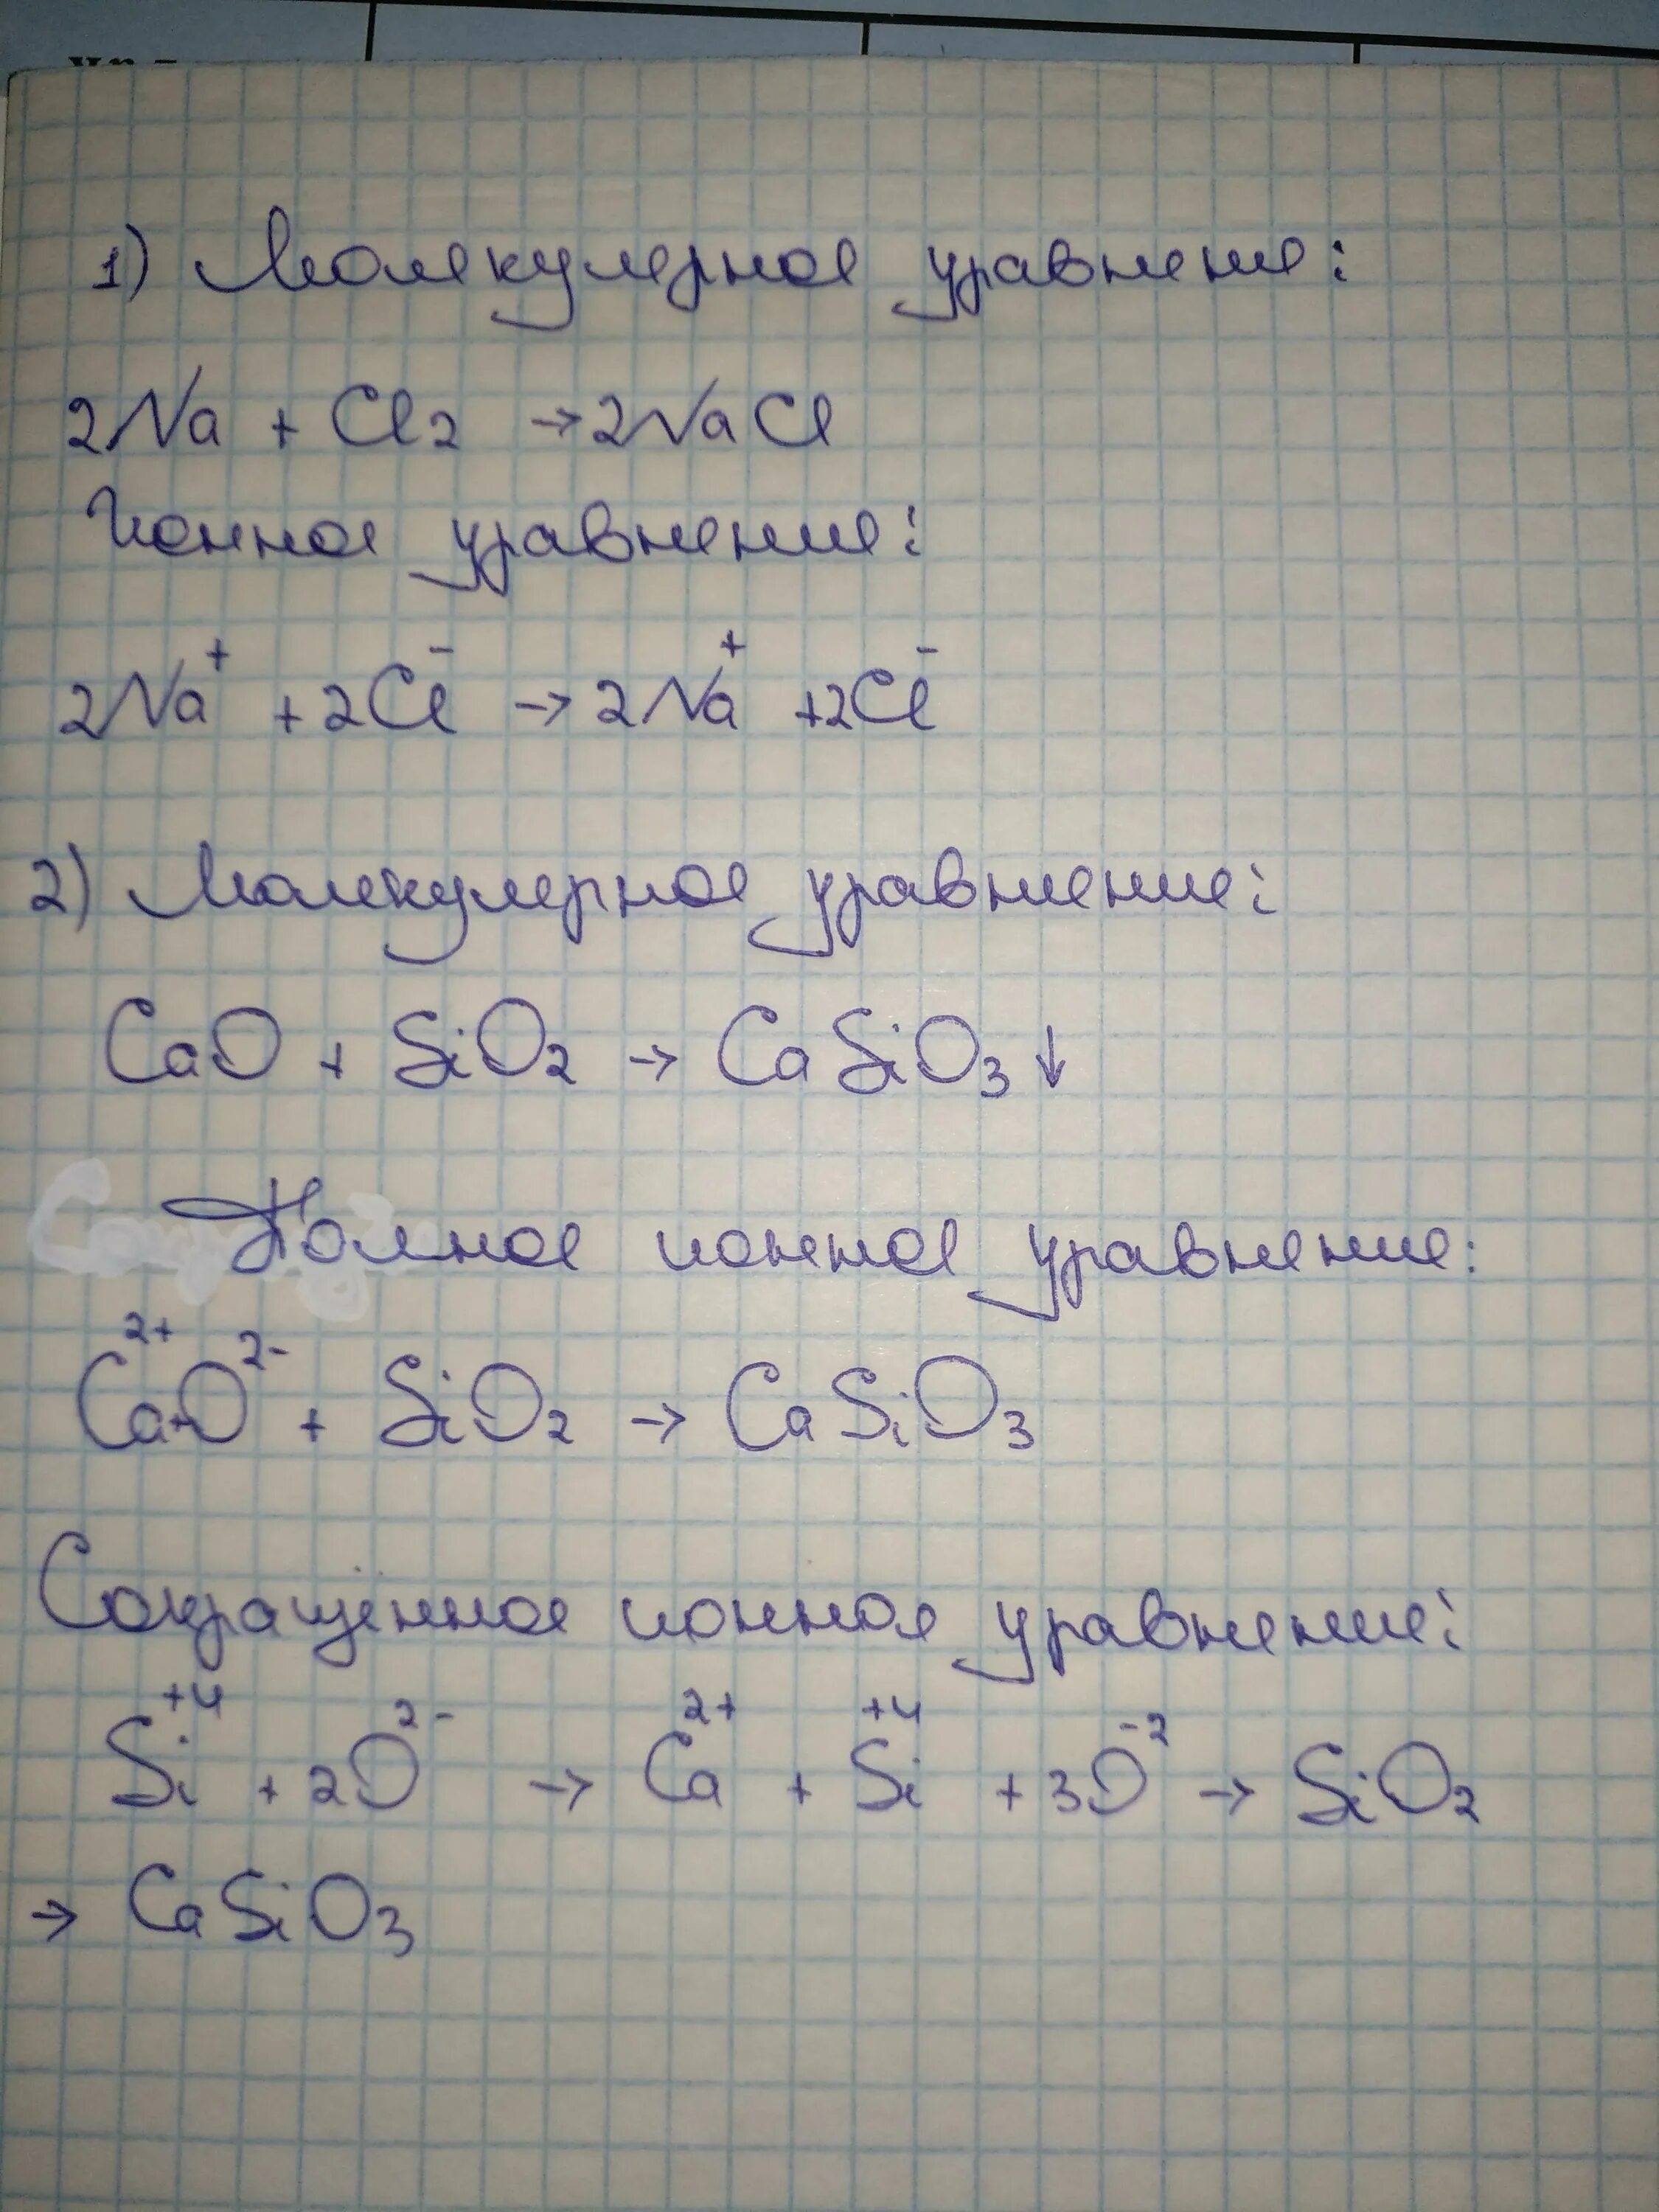 1) Молекулерное уравнение:
2Na + Cl₂ → 2NaCl
Ионное уравнение:
2Na⁺ + 2Cl⁻ → 2Na⁺ + 2Cl⁻
2) Молекулерное уравнение:
CaO + SiO₂ → CaSiO₃↓
Полное ионное уравнение:
Ca²⁺O²⁻ + SiO₂ → CaSiO₃
Сокращённое ионное уравнение:
Si⁺⁴ + 2O²⁻ → Ca²⁺ + Si⁺⁴ + 3O⁻² → SiO₂
→ CaSiO₃